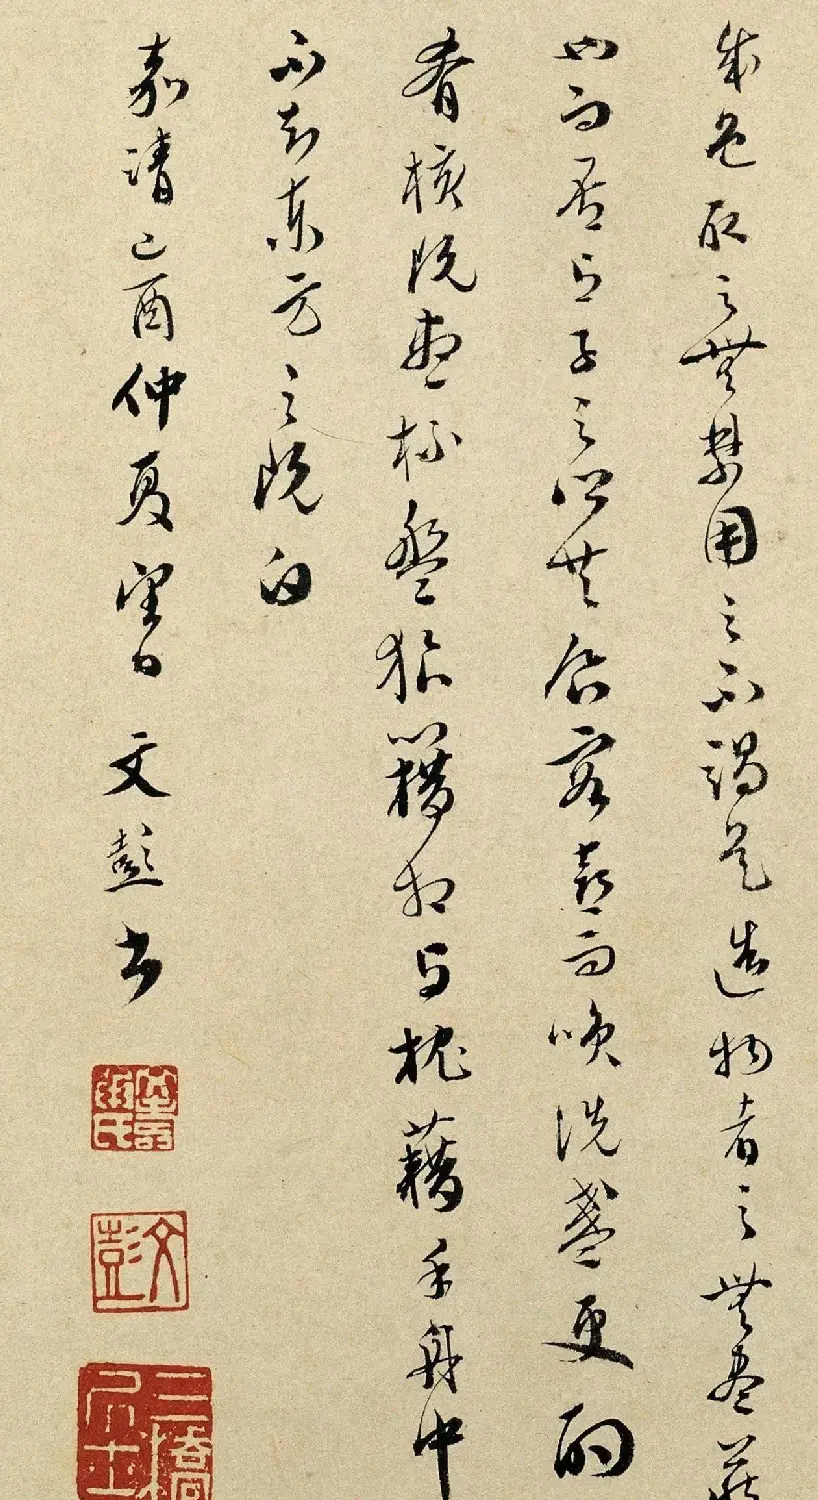 成色取之無禁用之不竭是造物者之無盡藏
也而吾與子之所共食客喜而咲洗盞更酌
肴核既盡杯盤狼籍相與枕藉乎舟中
不知東方之既白
嘉靖己酉仲夏望日文彭書
文彭
三橋居士